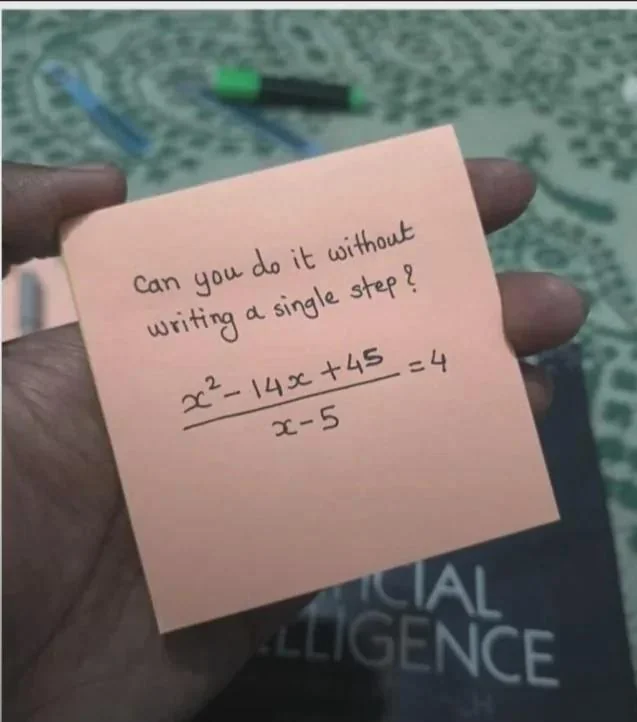 Can you do it without
writing a single step?
x² - 14x + 45
= 4
x - 5
CIAL
LLIGENCE